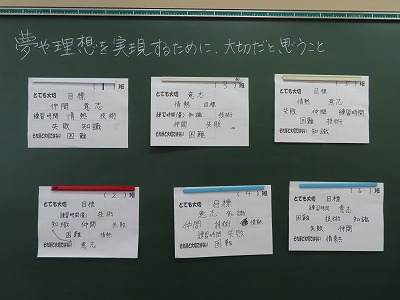 夢や理想を実現するために、大切だと思うこと
(1)班
とても大切 目標
仲間 意志
練習時間 情熱 技術
失敗 知識
それほど大切ではない 困難
(3)班
とても大切 意志
情熱 目標
練習時間(量) 知識 技術
仲間 失敗
それほど大切ではない 困難
(5)班
とても大切 目標
情熱 意志
失敗 仲間 練習時間
困難 技術
それほど大切ではない 知識
(2)班
とても大切 目標
練習時間(量) 技術
知識 仲間 失敗
困難 情熱
それほど大切ではない 意志
(4)班
とても大切 目標
意志 知識
仲間 技術 情熱
練習時間 失敗
それほど大切ではない 困難
(6)班
とても大切 目標
練習時間 意志
困難 技術 知識
失敗 仲間
それほど大切ではない 情熱